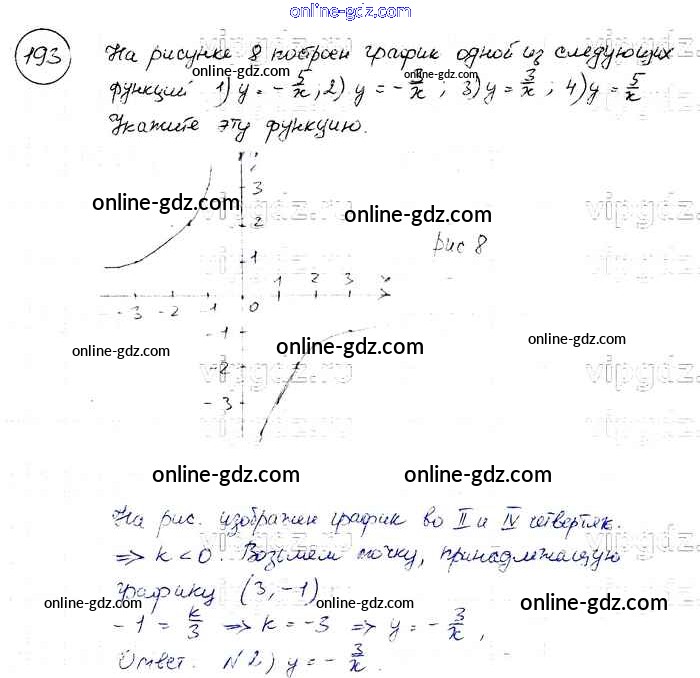 online-gdz.com
193 На рисунке 8 построен график одной из следующих
функций 1) y = -5/x; 2) y = -3/x; 3) y = 3/x; 4) y = 5/x
online-gdz.com
Укажите эту функцию.
3
online-gdz.com
online-gdz.com
vipgdz.ru
2
рис 8
1
1 2 3 x
-3 -2 -1 0
-1
online-gdz.com
online-gdz.com
online-gdz.com
-2
vipgdz.ru
-3
online-gdz.com
online-gdz.com
На рис. изображен график во II и IV четвертях.
=> k < 0. Возьмем точку, принадлежащую
online-gdz.com
графику (3, -1)
online-gdz.com
online-gdz.com
online-gdz.com
-1 = k/3 => k = -3 => y = -3/x,
Ответ. №2) y = -3/x.
online-gdz.com
online-gdz.com